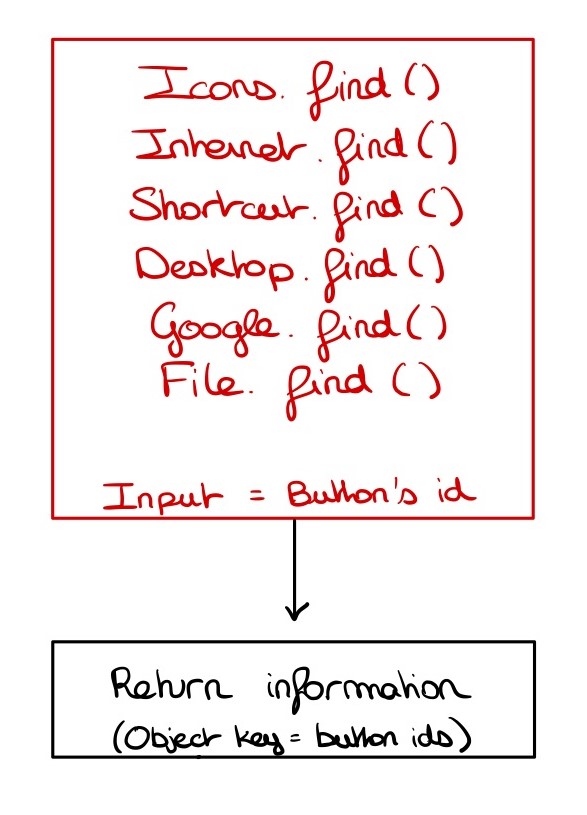 Icons. find ()
Internet. find ()
Shortcut. find ()
Desktop. find ()
Google. find ()
File. find ()
Input = Button's id
Return information
(Object key = button ids)